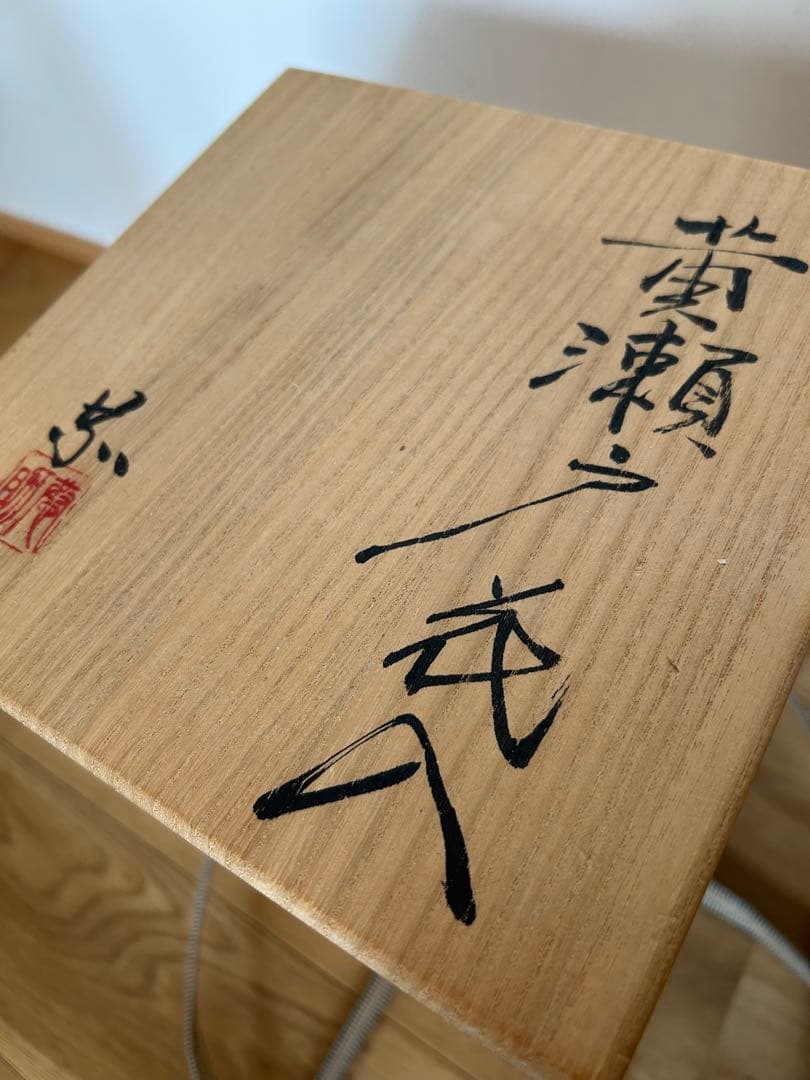 黄瀬戸花入